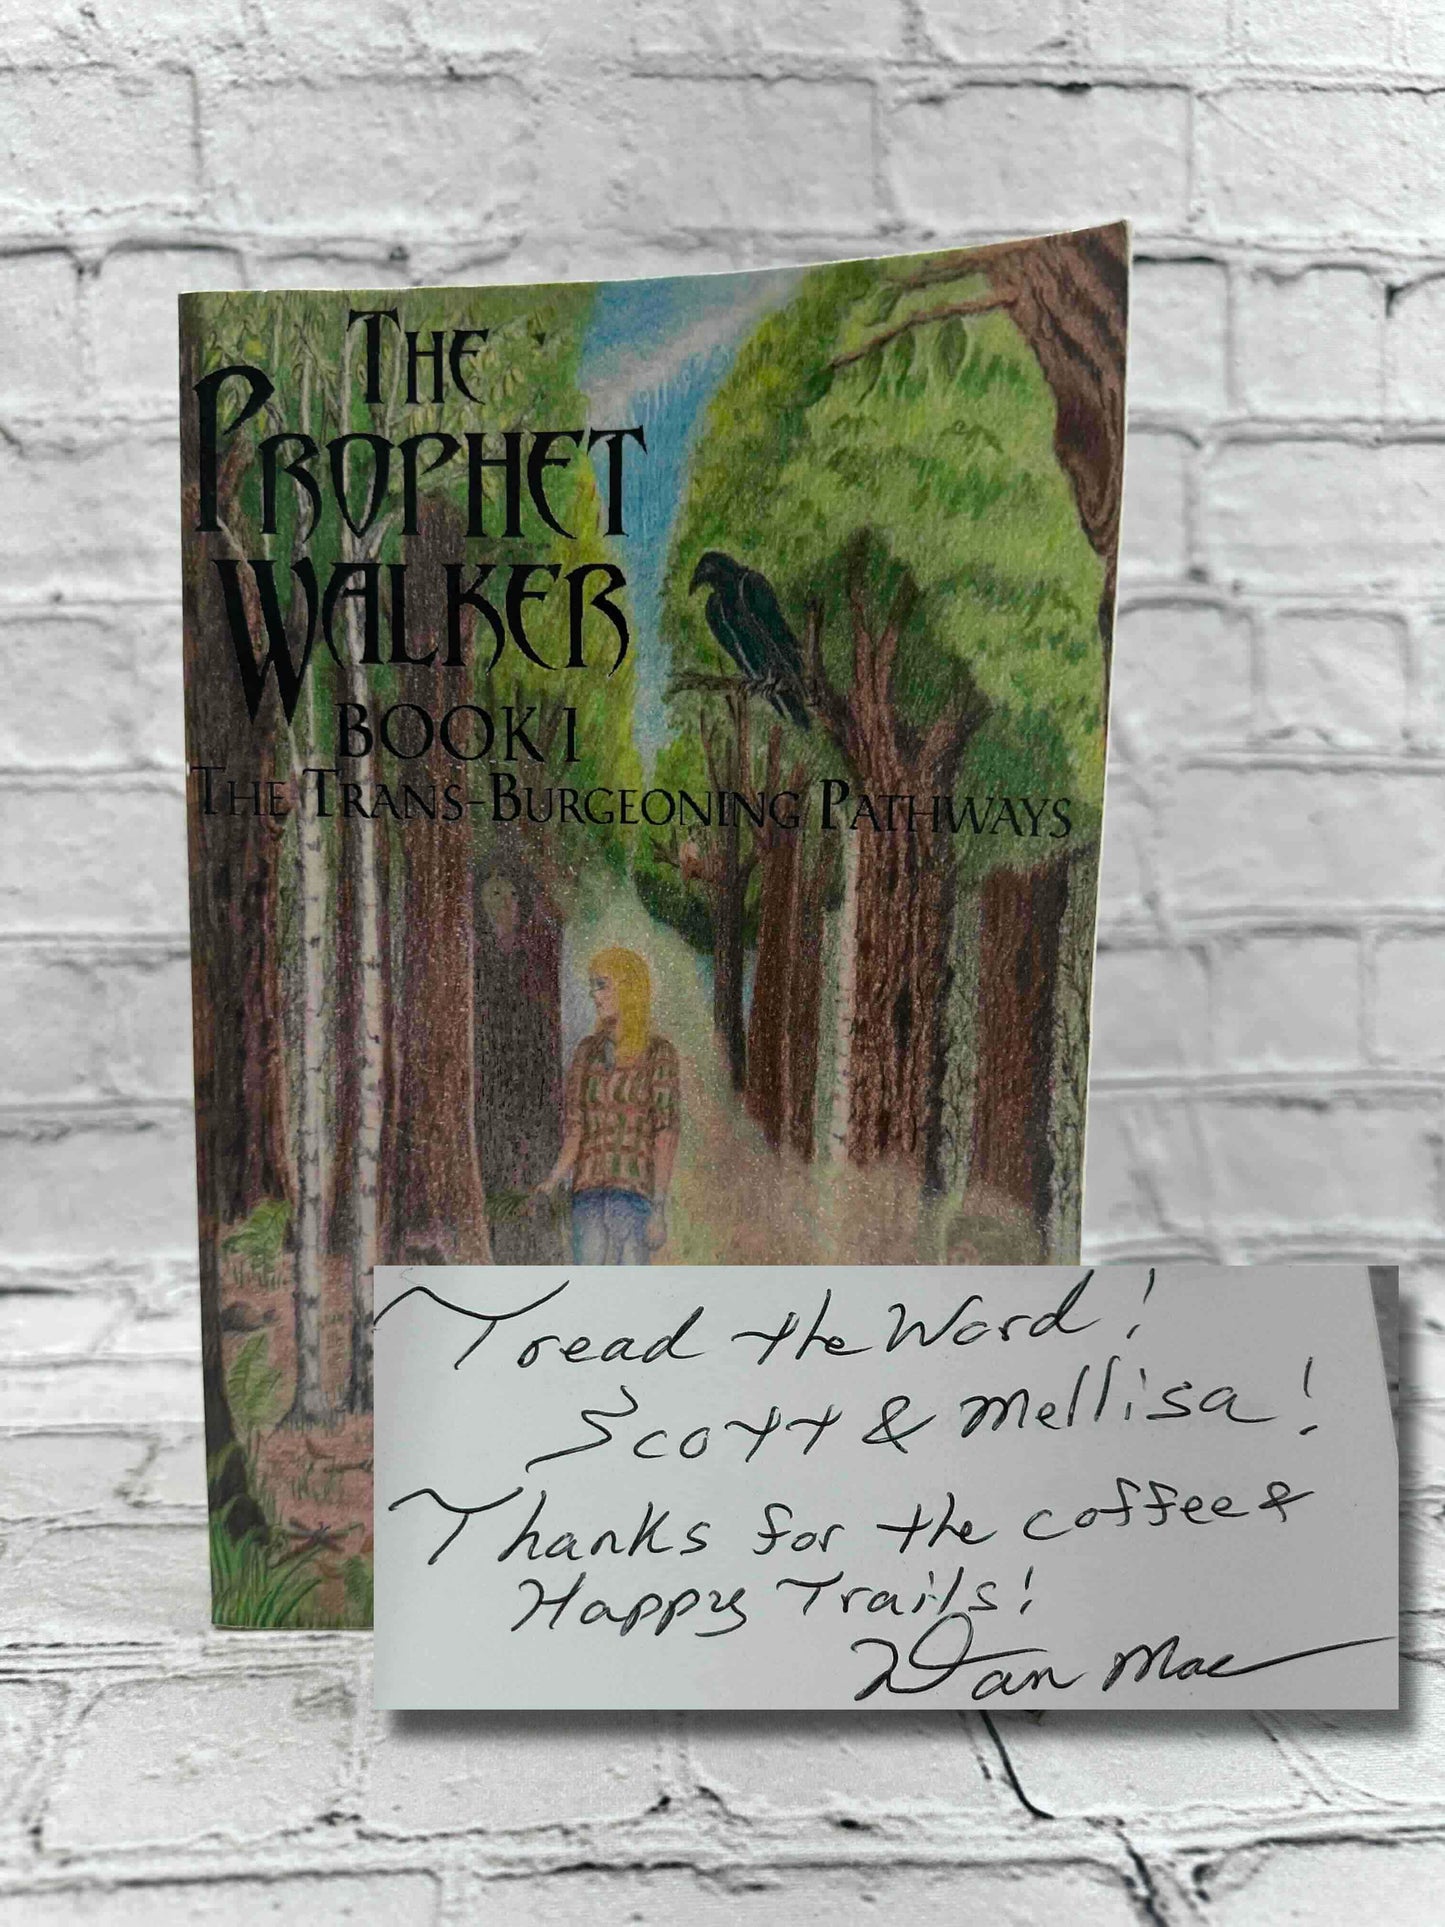 THE
PROPHET
WALKER
BOOK I
THE TRANS-BURGEONING PATHWAYS
Tread the Word!
Scott & Mellisa!
Thanks for the coffee &
Happy Trails!
Dan Mac